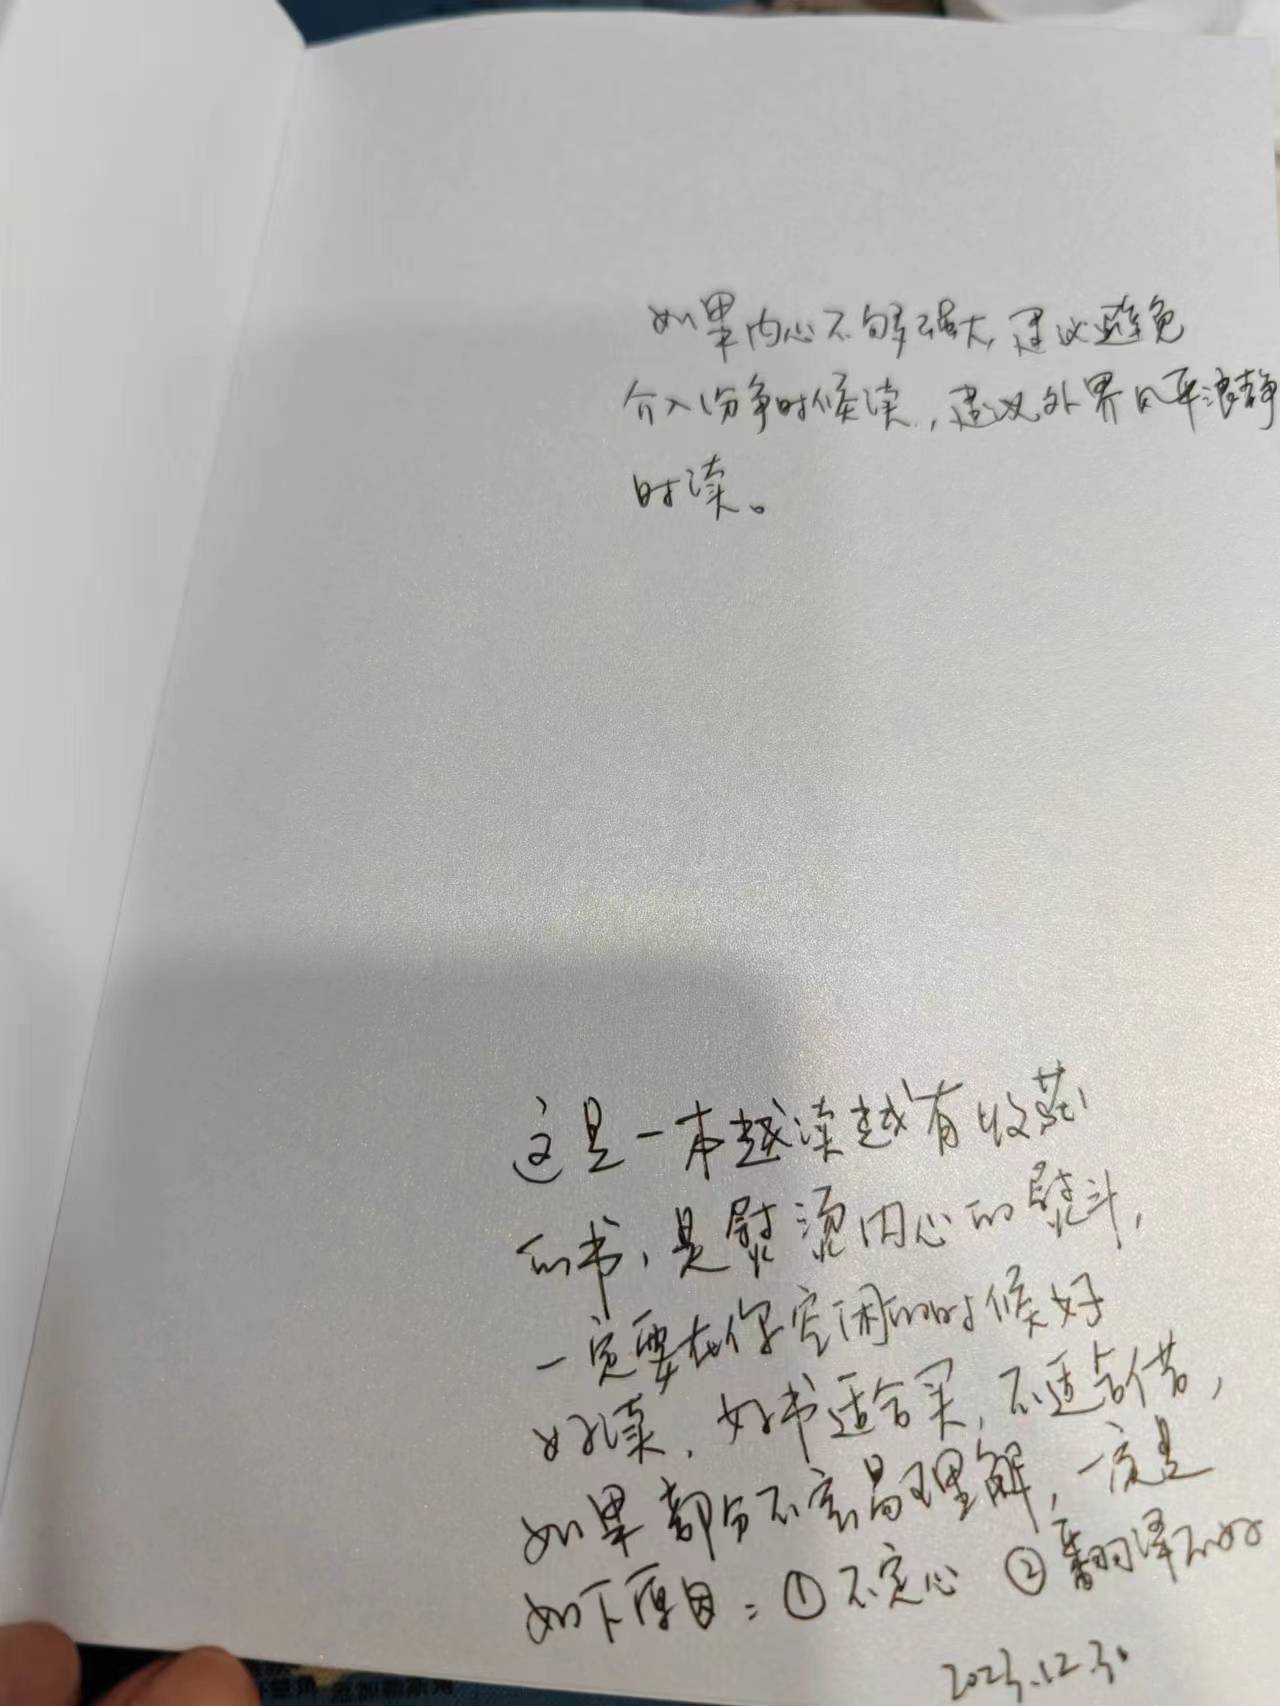 如果内心不够强大,建议避免
介入纷争时候读,建议外界风平浪静
时读。
这是一本越读越有收获
的书,是熨烫内心的熨斗,
一定要在你空闲的时候好
好读,好书适合买,不适合借,
如果部分不容易理解,一定是
如下原因:①不定心 ②翻译不好
2023.12.30